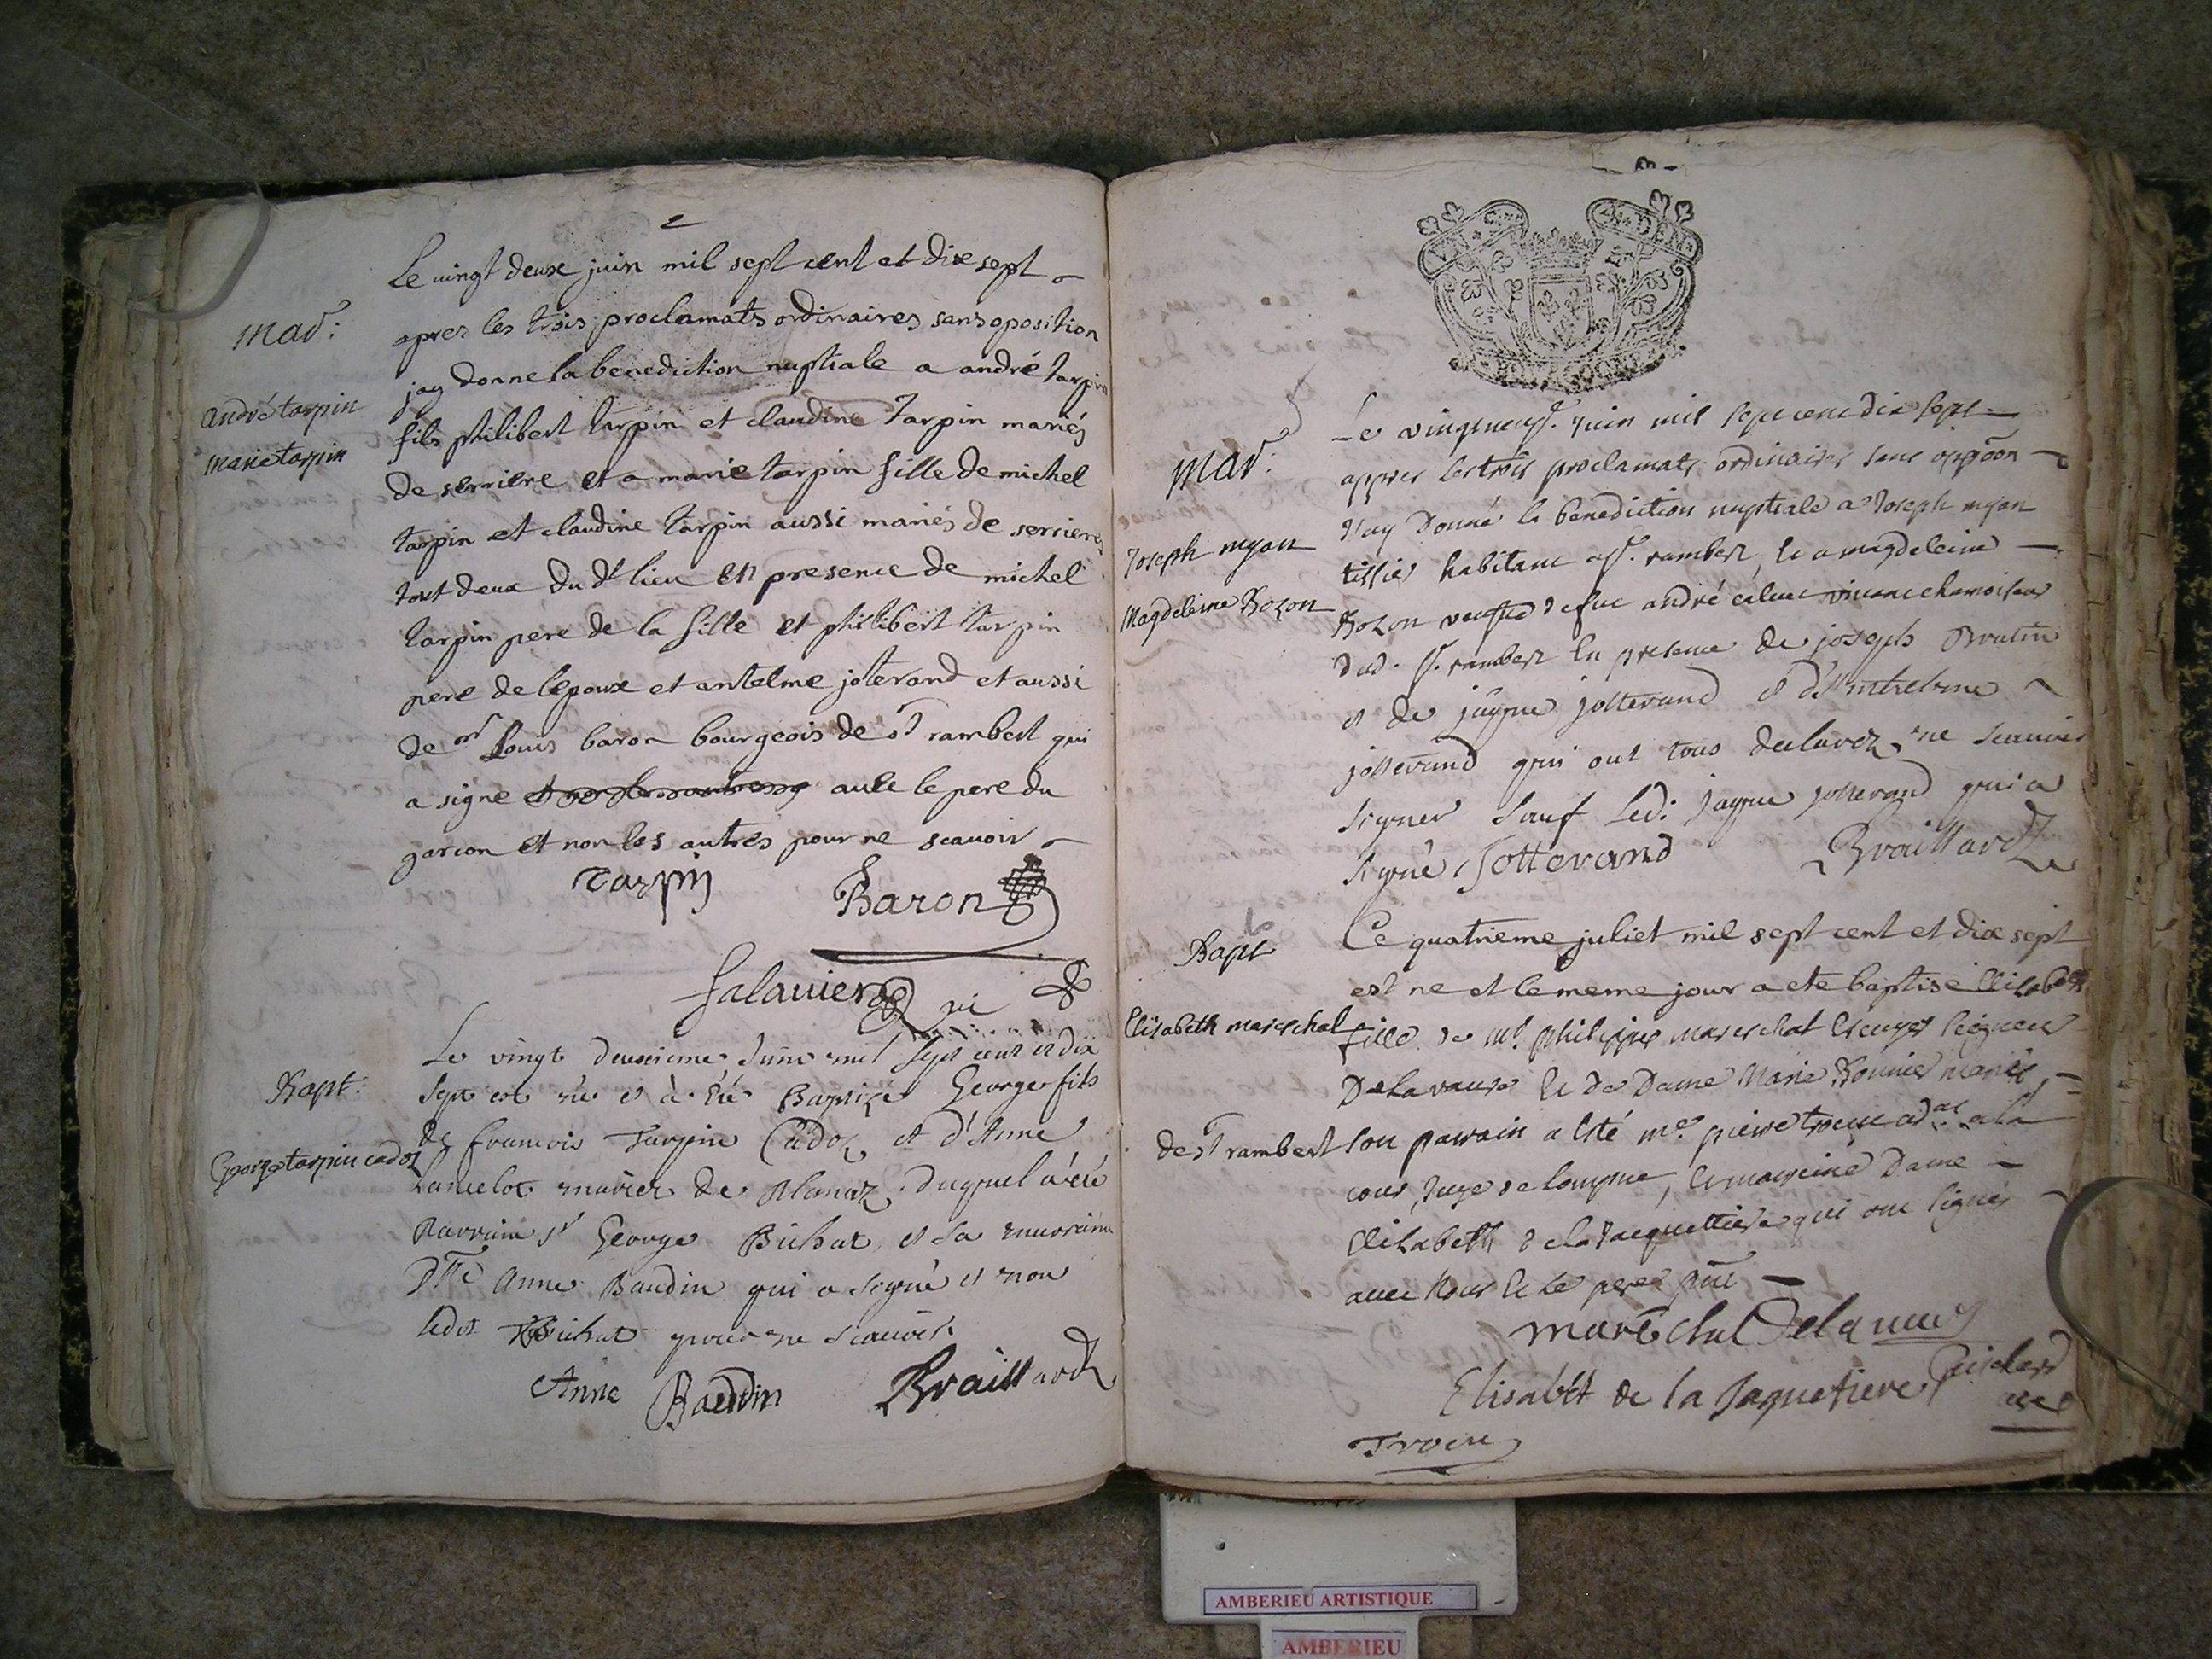 2
Le vingt deux juin mil sept cent et dix sept
mar:
apres les trois proclamats ordinaires sans oposition
jay donne la benediction nuptiale a andré tarpin
andré tarpin
fils philibert tarpin et claudine tarpin mariés
marie tarpin
de serriere et a marie tarpin fille de michel
tarpin et claudine tarpin aussi mariés de serrieres
tout deux du dt lieu en presence de michel
tarpin pere de la fille et philibert tarpin
pere de lepoux et antelme joterand et aussi
de mr Louis baron bourgeois de st rambert qui
a signe avec le pere du
garcon et non les autres pour ne scavoir
Tarpin
Baron
Salavier vic
Le vingt deuxieme Juin mil sept cent et dix
Bapt:
sept est née et à été Baptizé George fils
de francois Tarpin Cadoz et d'Anne
George tarpin cadoz
Lancelot mariez de duquel a été
Parrain sr George Bichat et la marraine
Dlle Anne Baudin qui a signé et non
ledit Bichat pour ne scavoir
Anne Baudin Braillard
3
Le vingtneuf. juin mil sept cent dix sept
mar:
appres les trois proclamats ordinaires sans oppoon
J'ay Donné la benediction nuptiale a Joseph myon
Joseph myon
tissier habitant a St. rambert, et a magdeleine
Magdeleine Bozon
Bozon veufve de fut andré chamoiseur
dud. St. rambert en presence de joseph Brutin
et de jayme jotterand et d'Anthelme
jotterand qui ont tous declarez ne scauoir
signer sauf led: jayme jotterand qui a
signé Jotterand Braillard
Ce quatrieme juliet mil sept cent et dix sept
Bapt
est ne et le meme jour a ete baptise Elisabeth
Elisabeth mareschal
fille de mr. philippe mareschal Escuyer seigneur
De la vaux et de Dame Marie Bonnier mariés
de st rambert
son parrain a esté me. pierre trocu adat. a la
cour, juge de lompne, et marreine Dame
Elisabeth de la Jacquettiere qui ont signés
avec nous et le pere pnt
marechal Delavaux
Elisabet de la Jaquetiere Guichard
curé
Trocu
AMBERIEU ARTISTIQUE
AMBERIEU